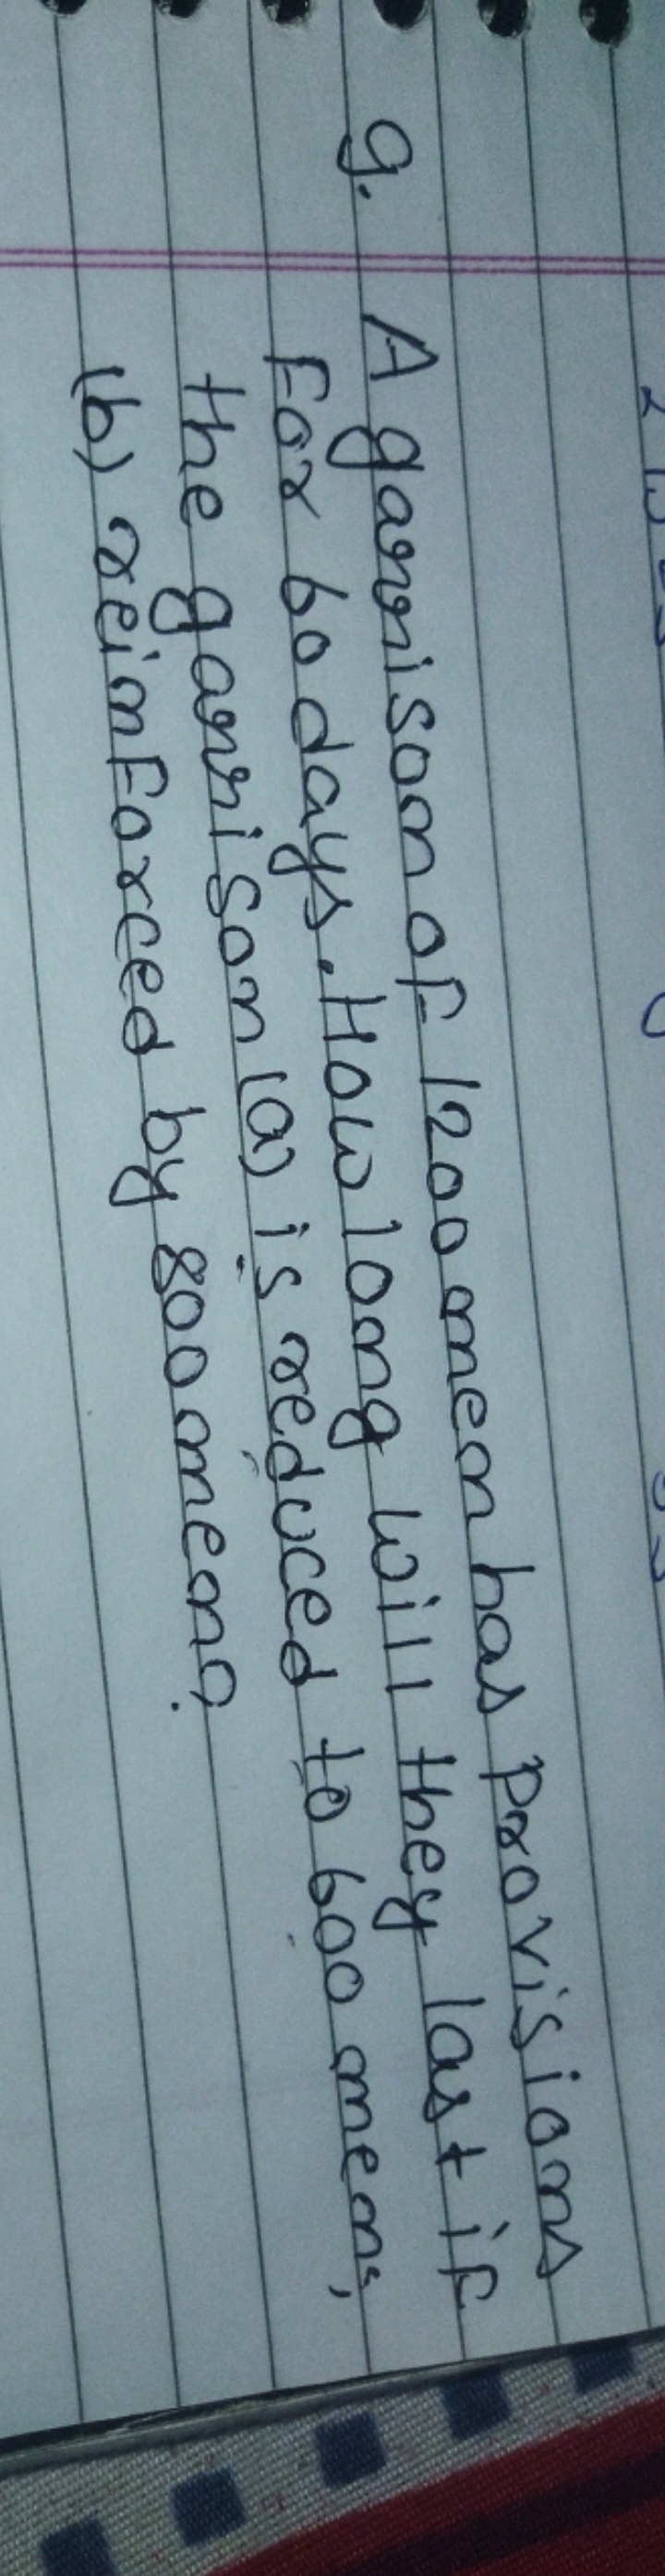 9. A garrison of 1200 men has provisions
For 60 days. How long will they last if
the garrison (a) is reduced to 600 men;
(b) reinforced by 800 men?